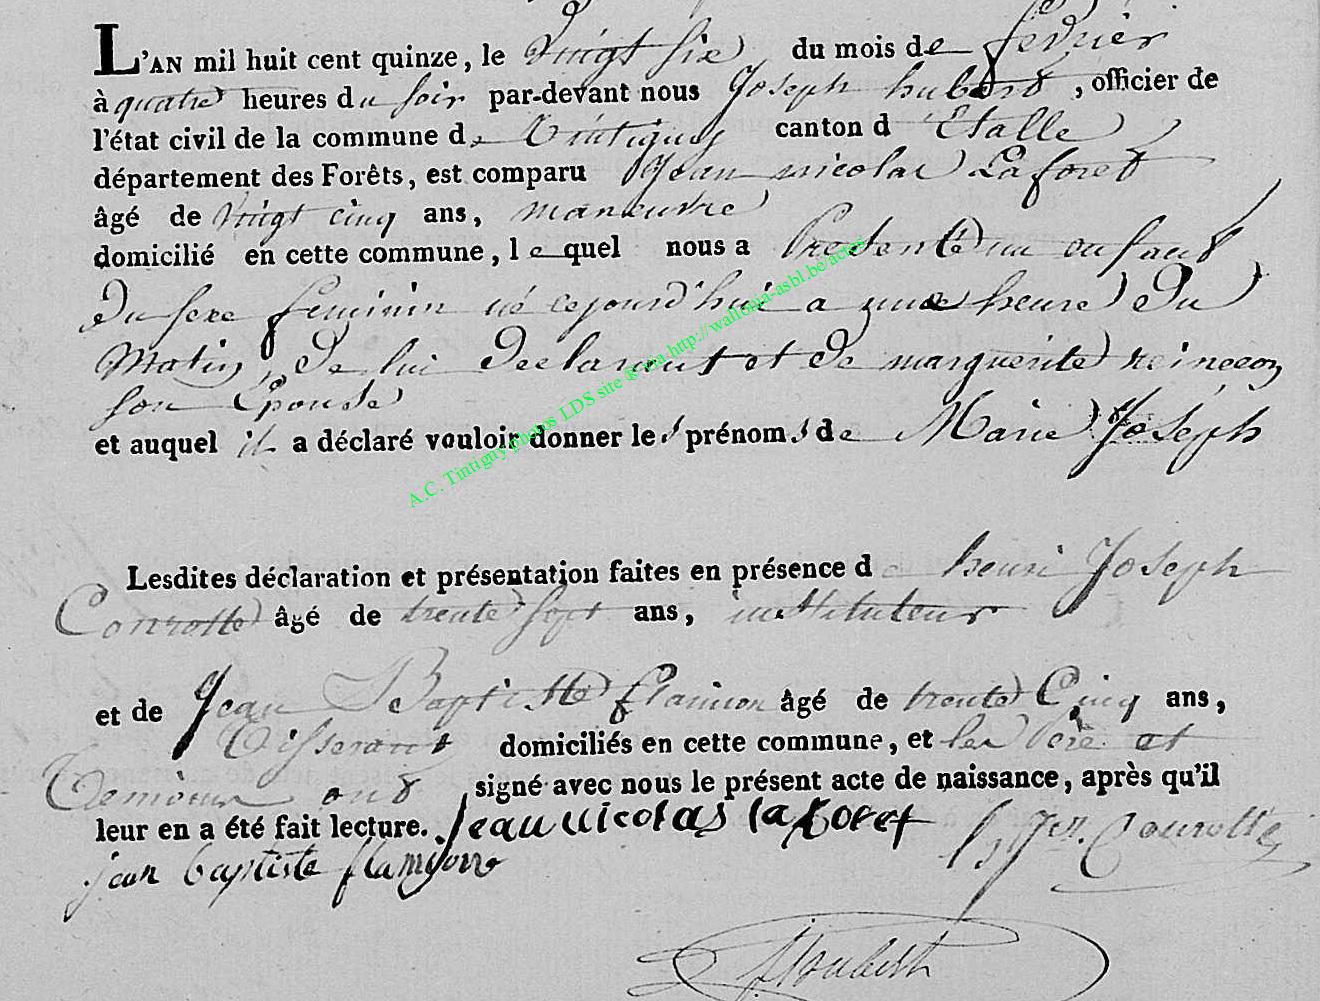 L'AN mil huit cent quinze, le vingt six du mois de fevrier
à quatre heures du soir par-devant nous Joseph hubert, officier de
l'état civil de la commune de Tintigny canton d'Etalle
département des Forêts, est comparu Jean nicolas Laforet
âgé de vingt cinq ans, maneuvre
domicilié en cette commune, lequel nous a presenté un enfant
du sexe feminin né cejourd'hui a une heure du
Matin, de lui declarant et de marguerite
son Epouse
et auquel il a déclaré vouloir donner les prénoms de Marie Joseph
Lesdites déclaration et présentation faites en présence de henri Joseph
Conrotte âgé de trente sept ans, instituteur
et de Jean Baptiste flamion âgé de trente Cinq ans,
Tisserant domiciliés en cette commune, et les pere et
Temoins ont signé avec nous le présent acte de naissance, après qu'il
leur en a été fait lecture. Jean nicolas laforet h j Conrotte
jean baptiste flamion
Houbert
A.C. Tintigny photos LDS site http://wallonia-asbl.be/actes